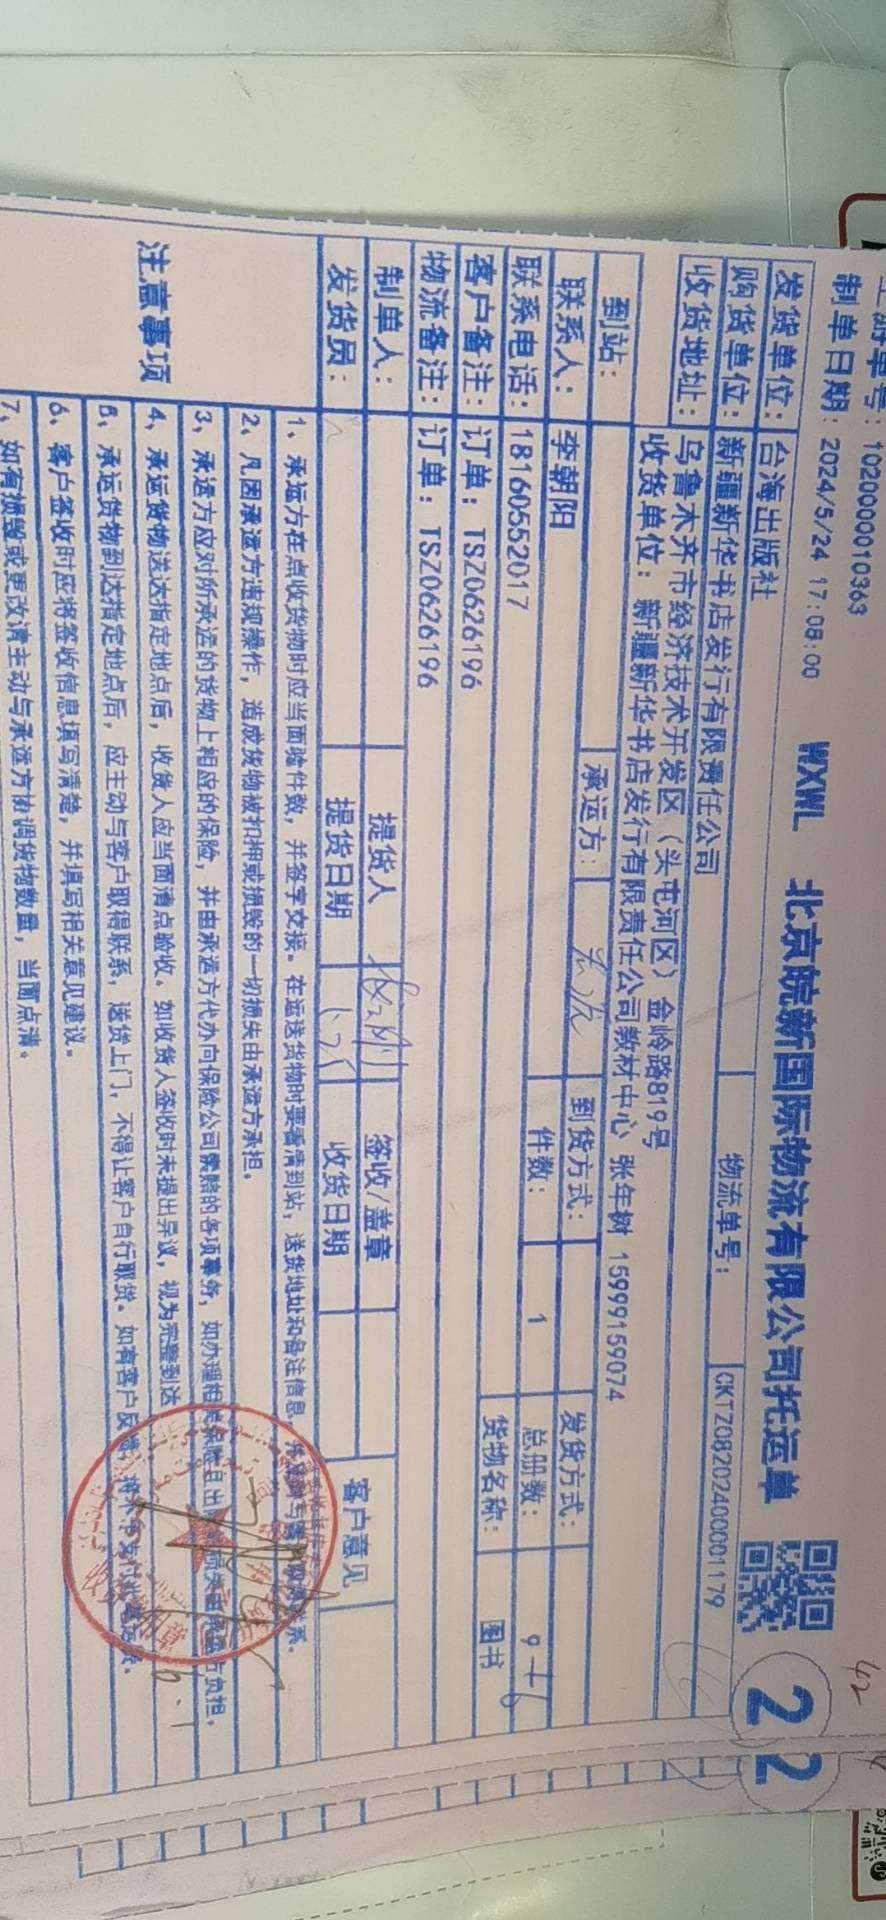 上游单号：102000010363
42
制单日期：2024/5/24 17:08:00 WXWL 北京皖新国际物流有限公司托运单 2 2
发货单位：台海出版社 物流单号： CKTZ0820240001179
购货单位：新疆新华书店发行有限责任公司
收货地址：乌鲁木齐市经济技术开发区（头屯河区）金岭路819号
收货单位：新疆新华书店发行有限责任公司教材中心 张年树 15999159074
到站： 承运方： 到货方式： 发货方式：
联系人：李朝阳 件数： 1 总册数： 9
联系电话：18160552017 货物名称： 图书
客户备注：订单：TSZ0626196
物流备注：订单：TSZ0626196
制单人： 提货人 签收/盖章 客户意见
发货员： 提货日期 收货日期
注意事项
1、承运方在点收货物时应当面验件数，并签字交接。在运送货物时要看清到站，送货地址和备注信息，
2、凡因承运方违规操作，造成货物被扣押或损毁的一切损失由承运方承担。
3、承运方应对所承运的货物上相应的保险，并由承运方代办向保险公司索赔的各项事务，如办理相关保险且出 负担。
4、承运货物送达指定地点后，收货人应当面清点验收。如收货人签收时未提出异议，视为完整到达
5、承运货物到达指定地点后，应主动与客户取得联系，送货上门，不得让客户自行取货。如有客户反馈，
6、客户签收时应将签收信息填写清楚，并填写相关意见建议。
7、如有损毁或更改请主动与承运方协调货物数量，当面点清。
6.1